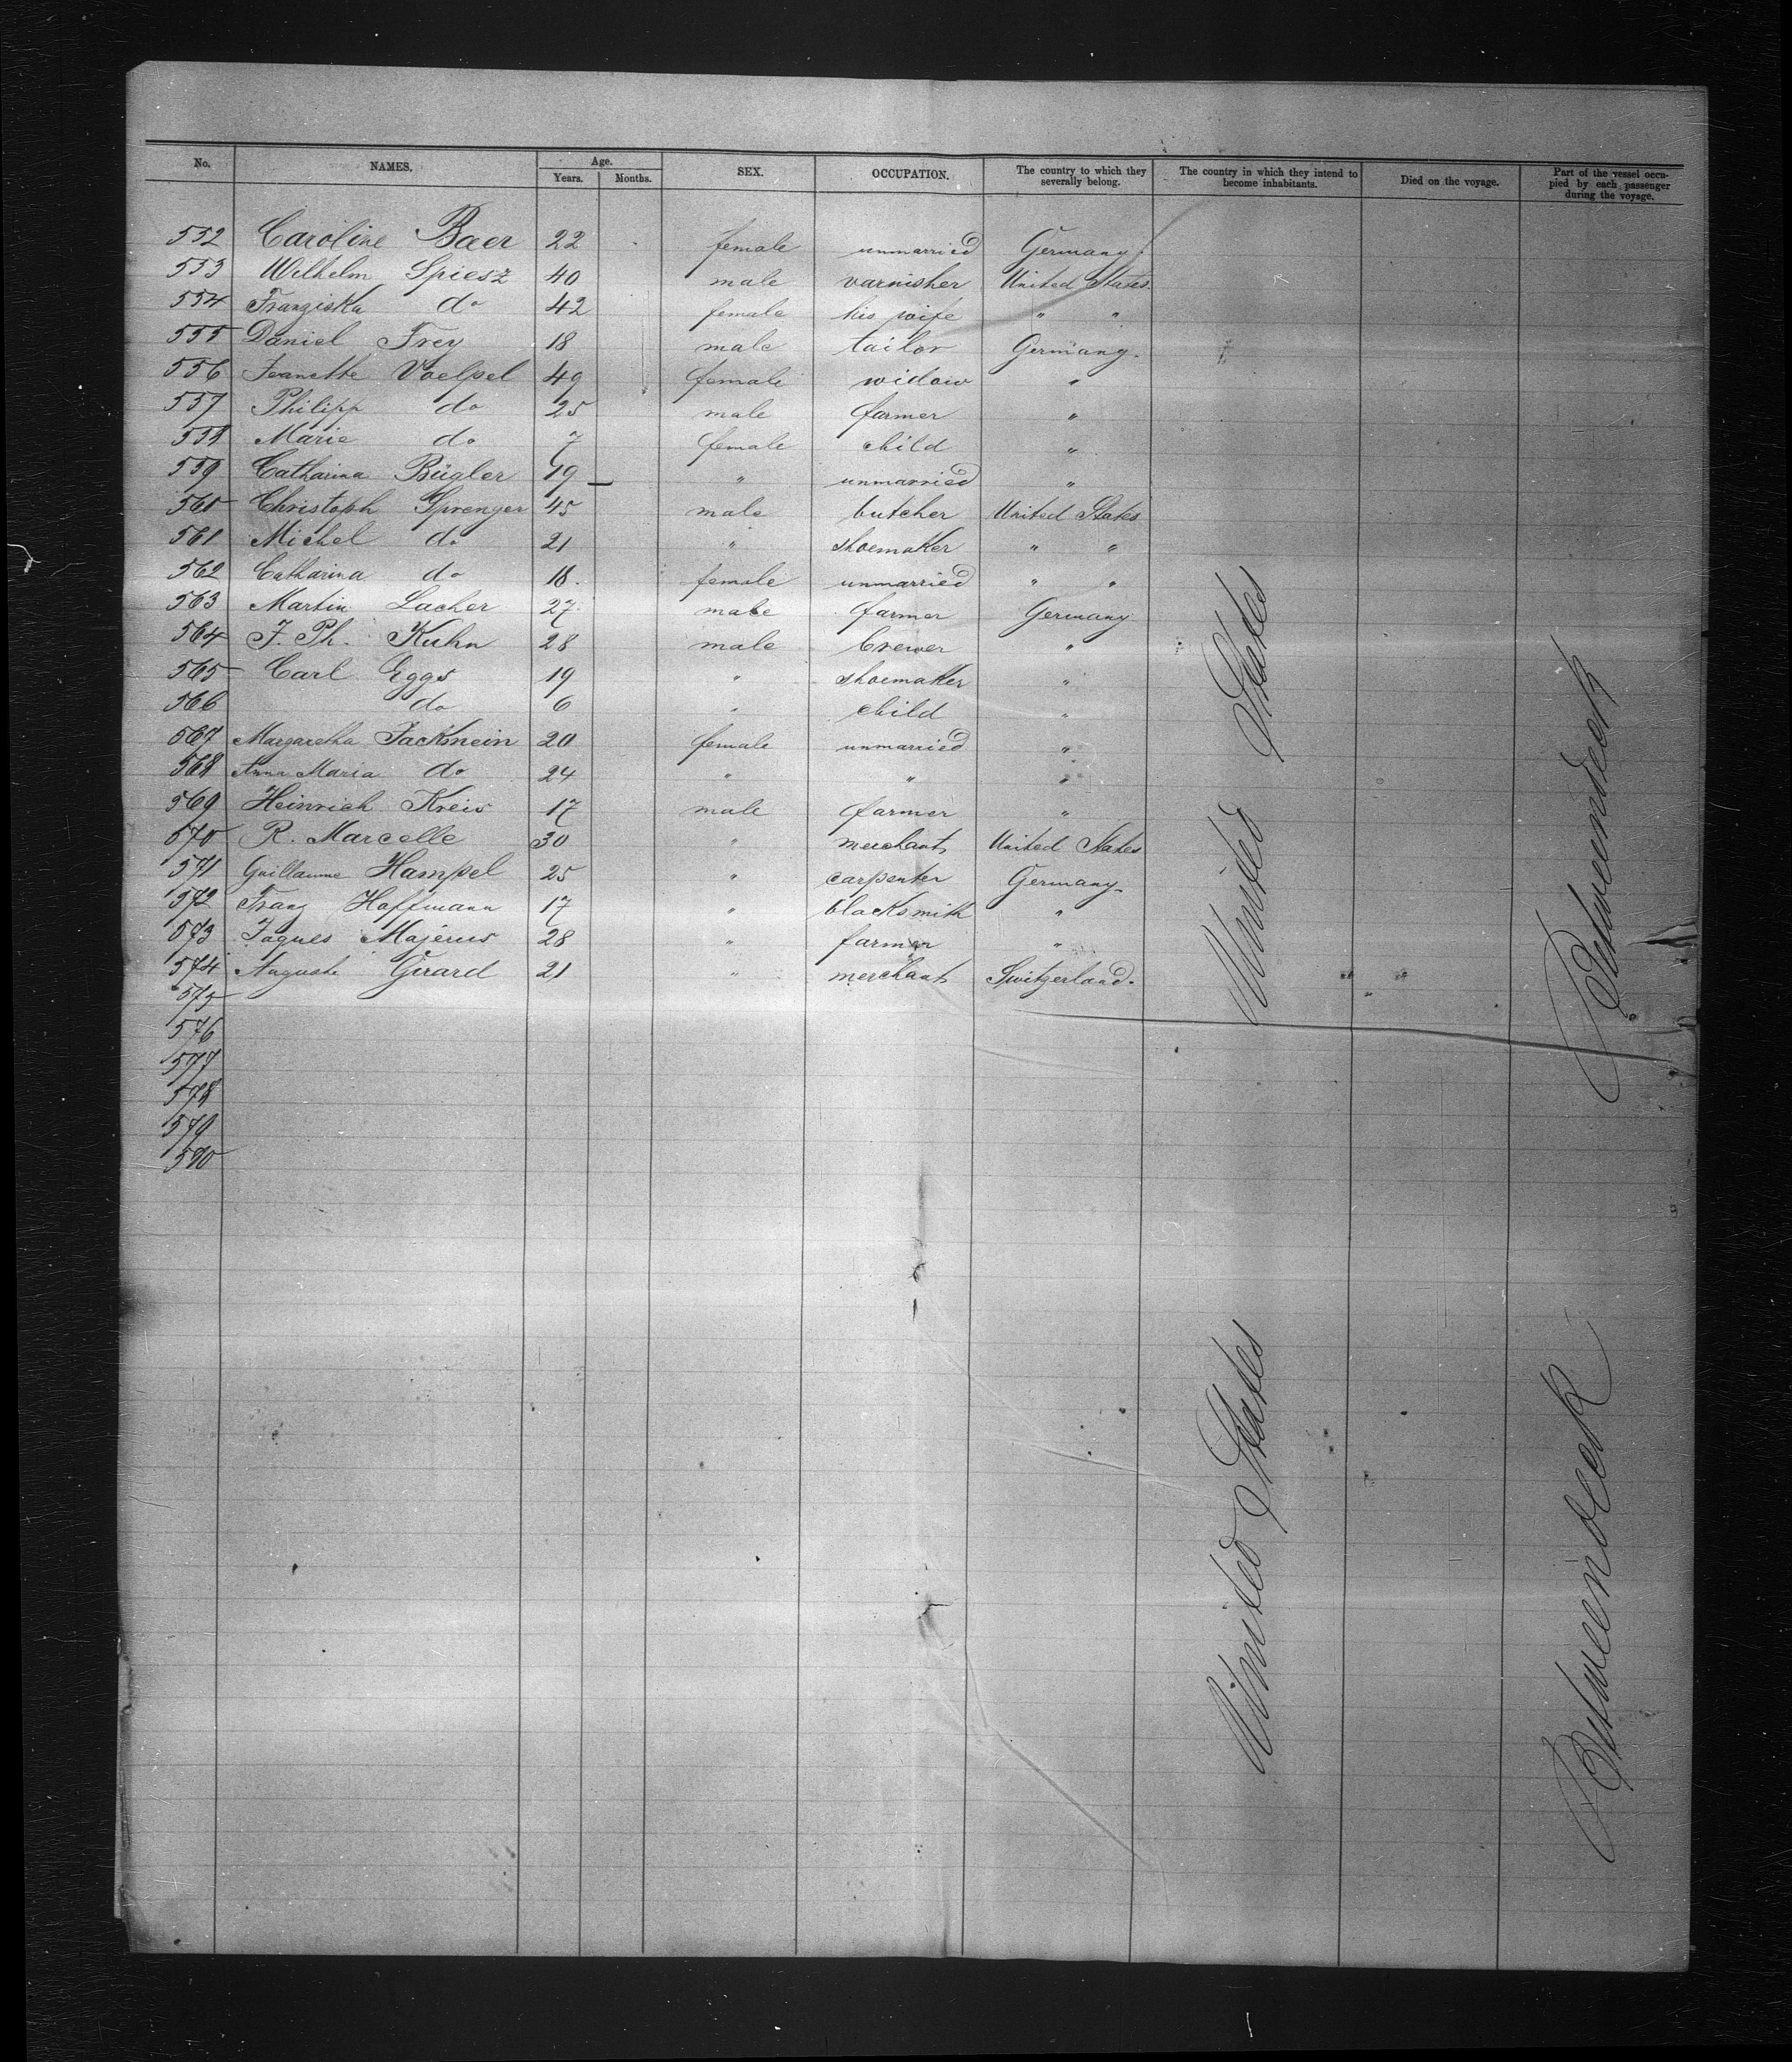 No. NAMES. Age. Years. Months. SEX. OCCUPATION. The country to which they severally belong. The country in which they intend to become inhabitants. Died on the voyage. Part of the vessel occupied by each passenger during the voyage.
552 Caroline Baer 22 female unmarried Germany.
553 Wilhelm Spiesz 40 male varnisher United States.
554 Franziska do 42 female his wife " "
555 Daniel Frey 18 male tailor Germany.
556 Jeanette Voelpel 49 female widow "
557 Philipp do 25 male farmer "
558 Marie do 7 female child "
559 Catharina Bügler 19 " unmarried "
560 Christoph Sprenger 45 male butcher United States
561 Michel do 21 " shoemaker " "
562 Catharina do 18. female unmarried " "
563 Martin Lacher 27 male farmer Germany
564 J. Ph. Kuhn 28 male brewer "
565 Carl Eggs 19 " shoemaker "
566 do 6 " child "
567 Margaretha Jackmein 20 female unmarried "
568 Anna Maria do 24 " " "
569 Heinrich Kreis 17 male farmer "
570 R. Marcelle 30 " merchant United States
571 Guillaume Hampel 25 " carpenter Germany.
572 Franz Hoffmann 17 " blacksmith "
573 Jaques Majerus 28 " farmer "
574 Auguste Girard 21 " merchant Switzerland.
575
576
577
578
579
580
United States
Betweendeck
United States
Betweendeck